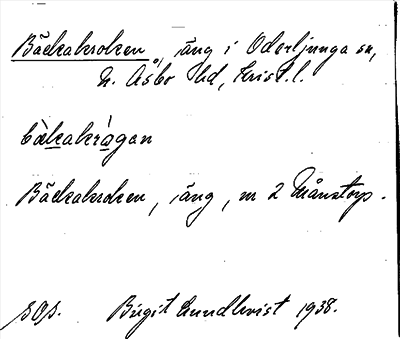 Bäckakroken, äng i Oderljunga sn,
N. Åsbo hd, Krist. l.
bàkakràgan
Bäckakroken, äng, nr 2 Månstorp.
SOS. Birgit Lundkvist 1938.